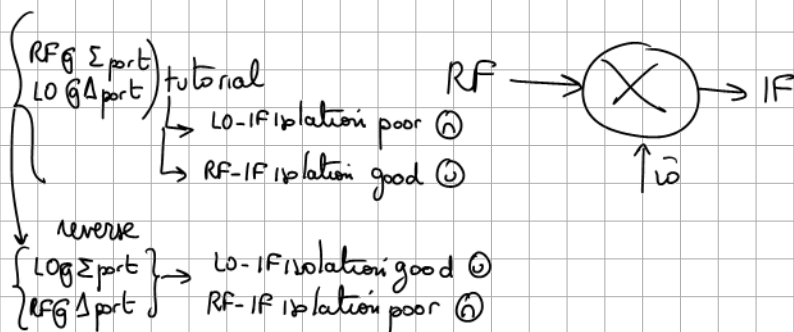 RF @ Σ port
LO @ Δ port
tutorial
LO-IF isolation poor
RF-IF isolation good
RF
IF
LO
reverse
LO @ Σ port
RF @ Δ port
LO-IF isolation good
RF-IF isolation poor